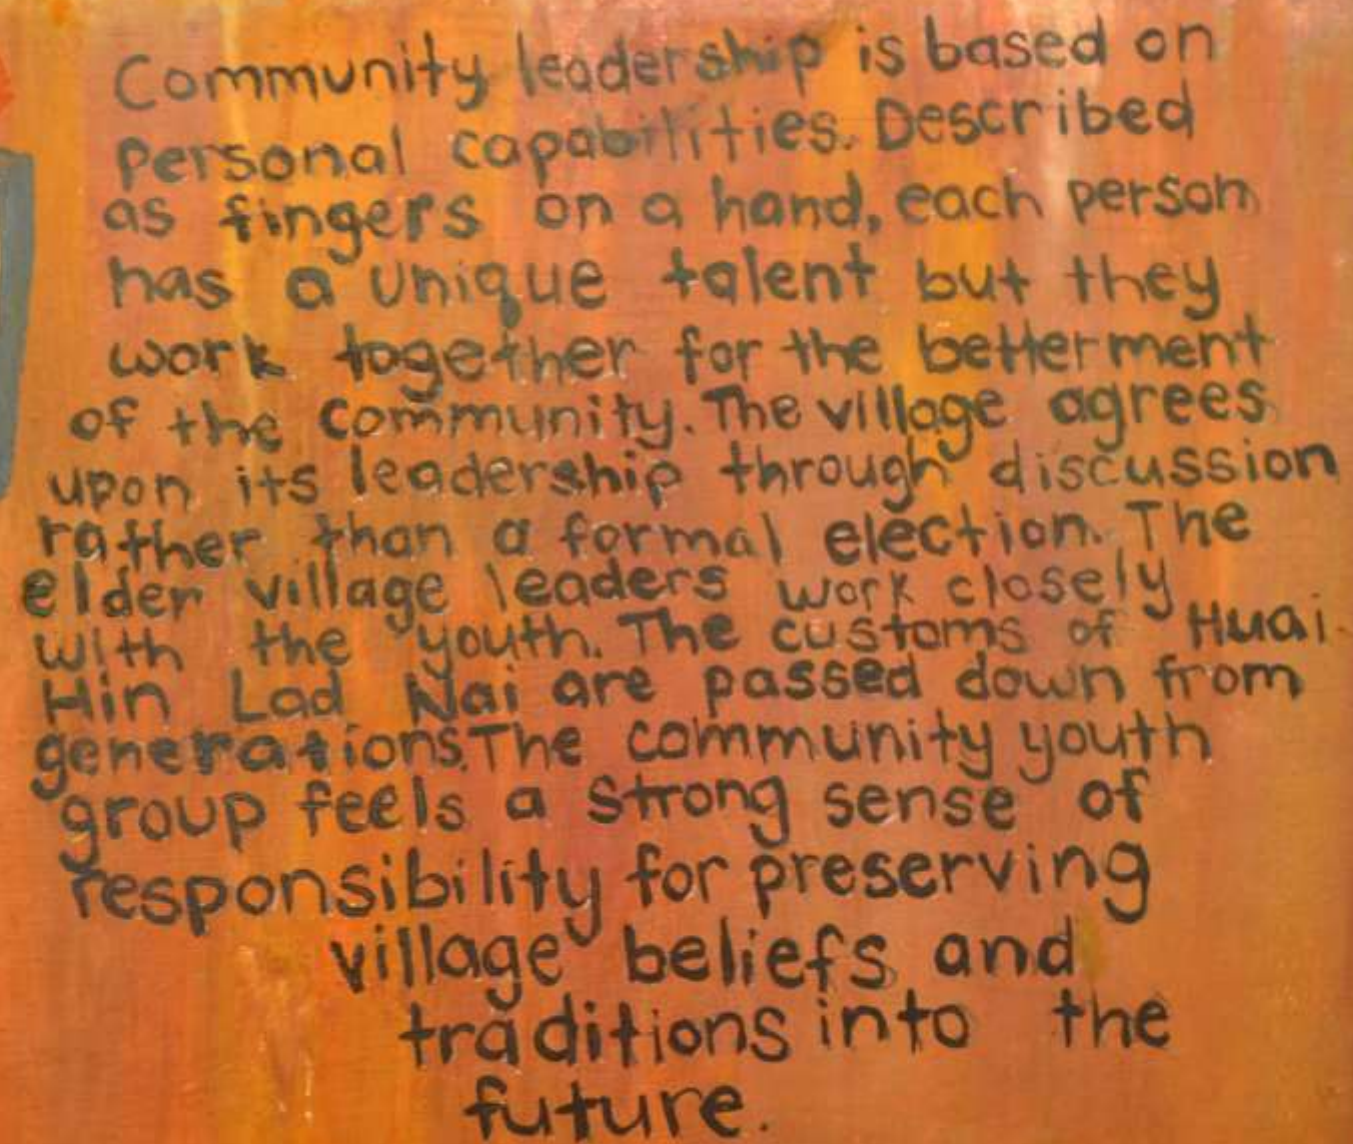 Community leadership is based on
personal capabilities. Described
as fingers on a hand, each person
has a unique talent but they
work together for the betterment
of the community. The village agrees
upon its leadership through discussion
rather than a formal election. The
elder village leaders work closely
with the youth. The customs of Huai
Hin Lad Nai are passed down from
generations. The community youth
group feels a strong sense of
responsibility for preserving
village beliefs and
traditions into the
future.